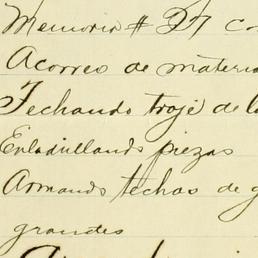 Memoria # 27 Co
Acarreo de materia
Techando troje de l
Enladrillando piezas
Armando techas de g
grandes